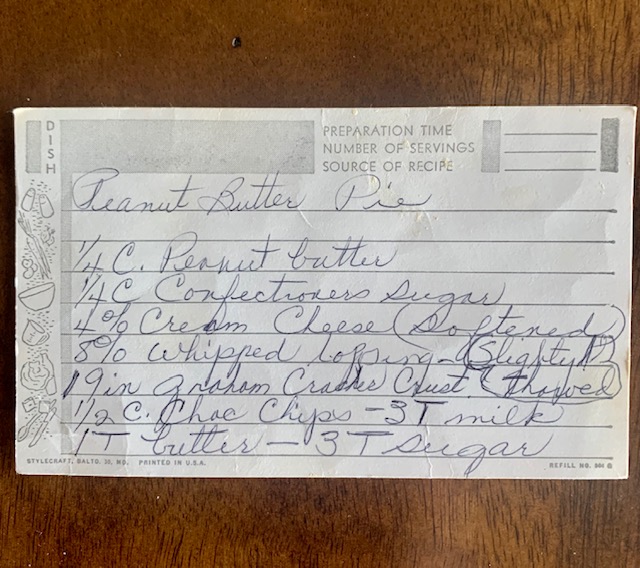 DISH
PREPARATION TIME
NUMBER OF SERVINGS
SOURCE OF RECIPE
Peanut Butter Pie
1/4 C. Peanut butter
1/4 C Confectioners Sugar
4 % Cream Cheese (Softened)
8 % Whipped topping - (Slightly
1 9 in graham Cracker Crust. Thawed)
1/2 C. Choc Chips - 3 T milk
1 T butter - 3 T sugar
STYLECRAFT, BALTO. 30, MD. PRINTED IN U.S.A.
REFILL NO.